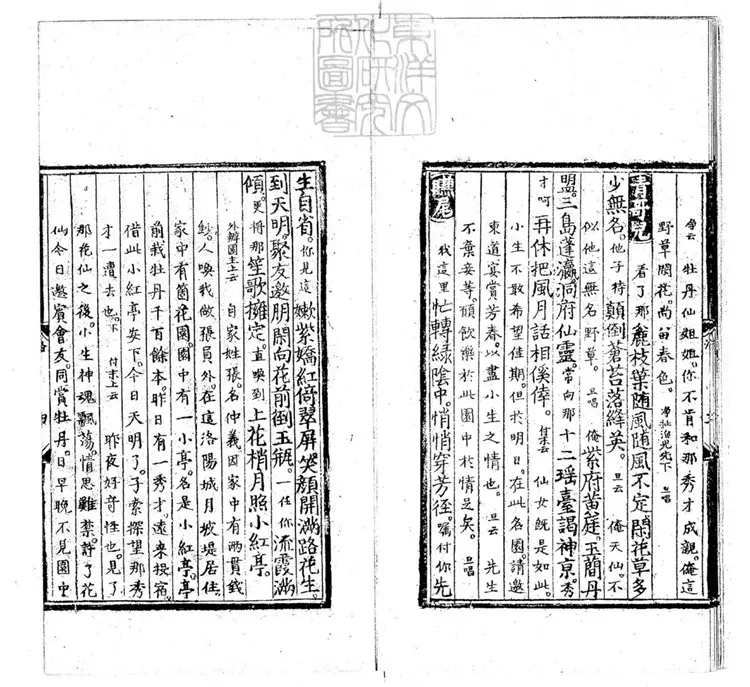 東洋文
化研究
所圖書
净云　牡丹仙姐姐你不肯和那秀才成親俺這
野草閑花尚苗春色　净扯治兒先下　旦唱
青哥兒　看了那麄枝葉随風随風不定閑花草多
少無名他子待顛倒蒼苔落絳英旦云　俺天仙不
似他這無名野草旦唱　俺紫府黄庭玉簡丹
盟三島蓬瀛洞府仙靈常向那十二瑶臺謁神亰秀
才呵再休把風月話相傒倖付末云　仙女既是如此
小生不敢希望佳期但於明日在此名園請邀
東道宴賞芳春以盡小生之情也旦云　先生
不棄妾等傾飲樂於此園中於情足矣旦唱
賺尾　我這里忙轉緑陰中悄悄穿芳徑囑付你先
生自省你見這嫰紫嬌紅倚翠屏笑顔開滿路花生
到天明聚友邀朋閑向花前倒玉瓶一任你流霞滿
傾更將那笙歌擁定直喚到上花梢月照小紅亭
外辦園主上云　自家姓張名仲義因家中有兩貫錢
鈔人喚我做張員外在這洛陽城月坡堤居住
家中有箇花園園中有一小亭名是小紅亭亭
前栽牡丹千百餘本昨日有一秀才遠来投宿
借此小紅亭安下今日天明了子索探望那秀
才一遭去也下　付末上云　昨夜好竒怪也見了
那花仙之後小生神魂飄蕩情思難禁許了花
仙今日邀賓會友同賞牡丹日早晚不見園中